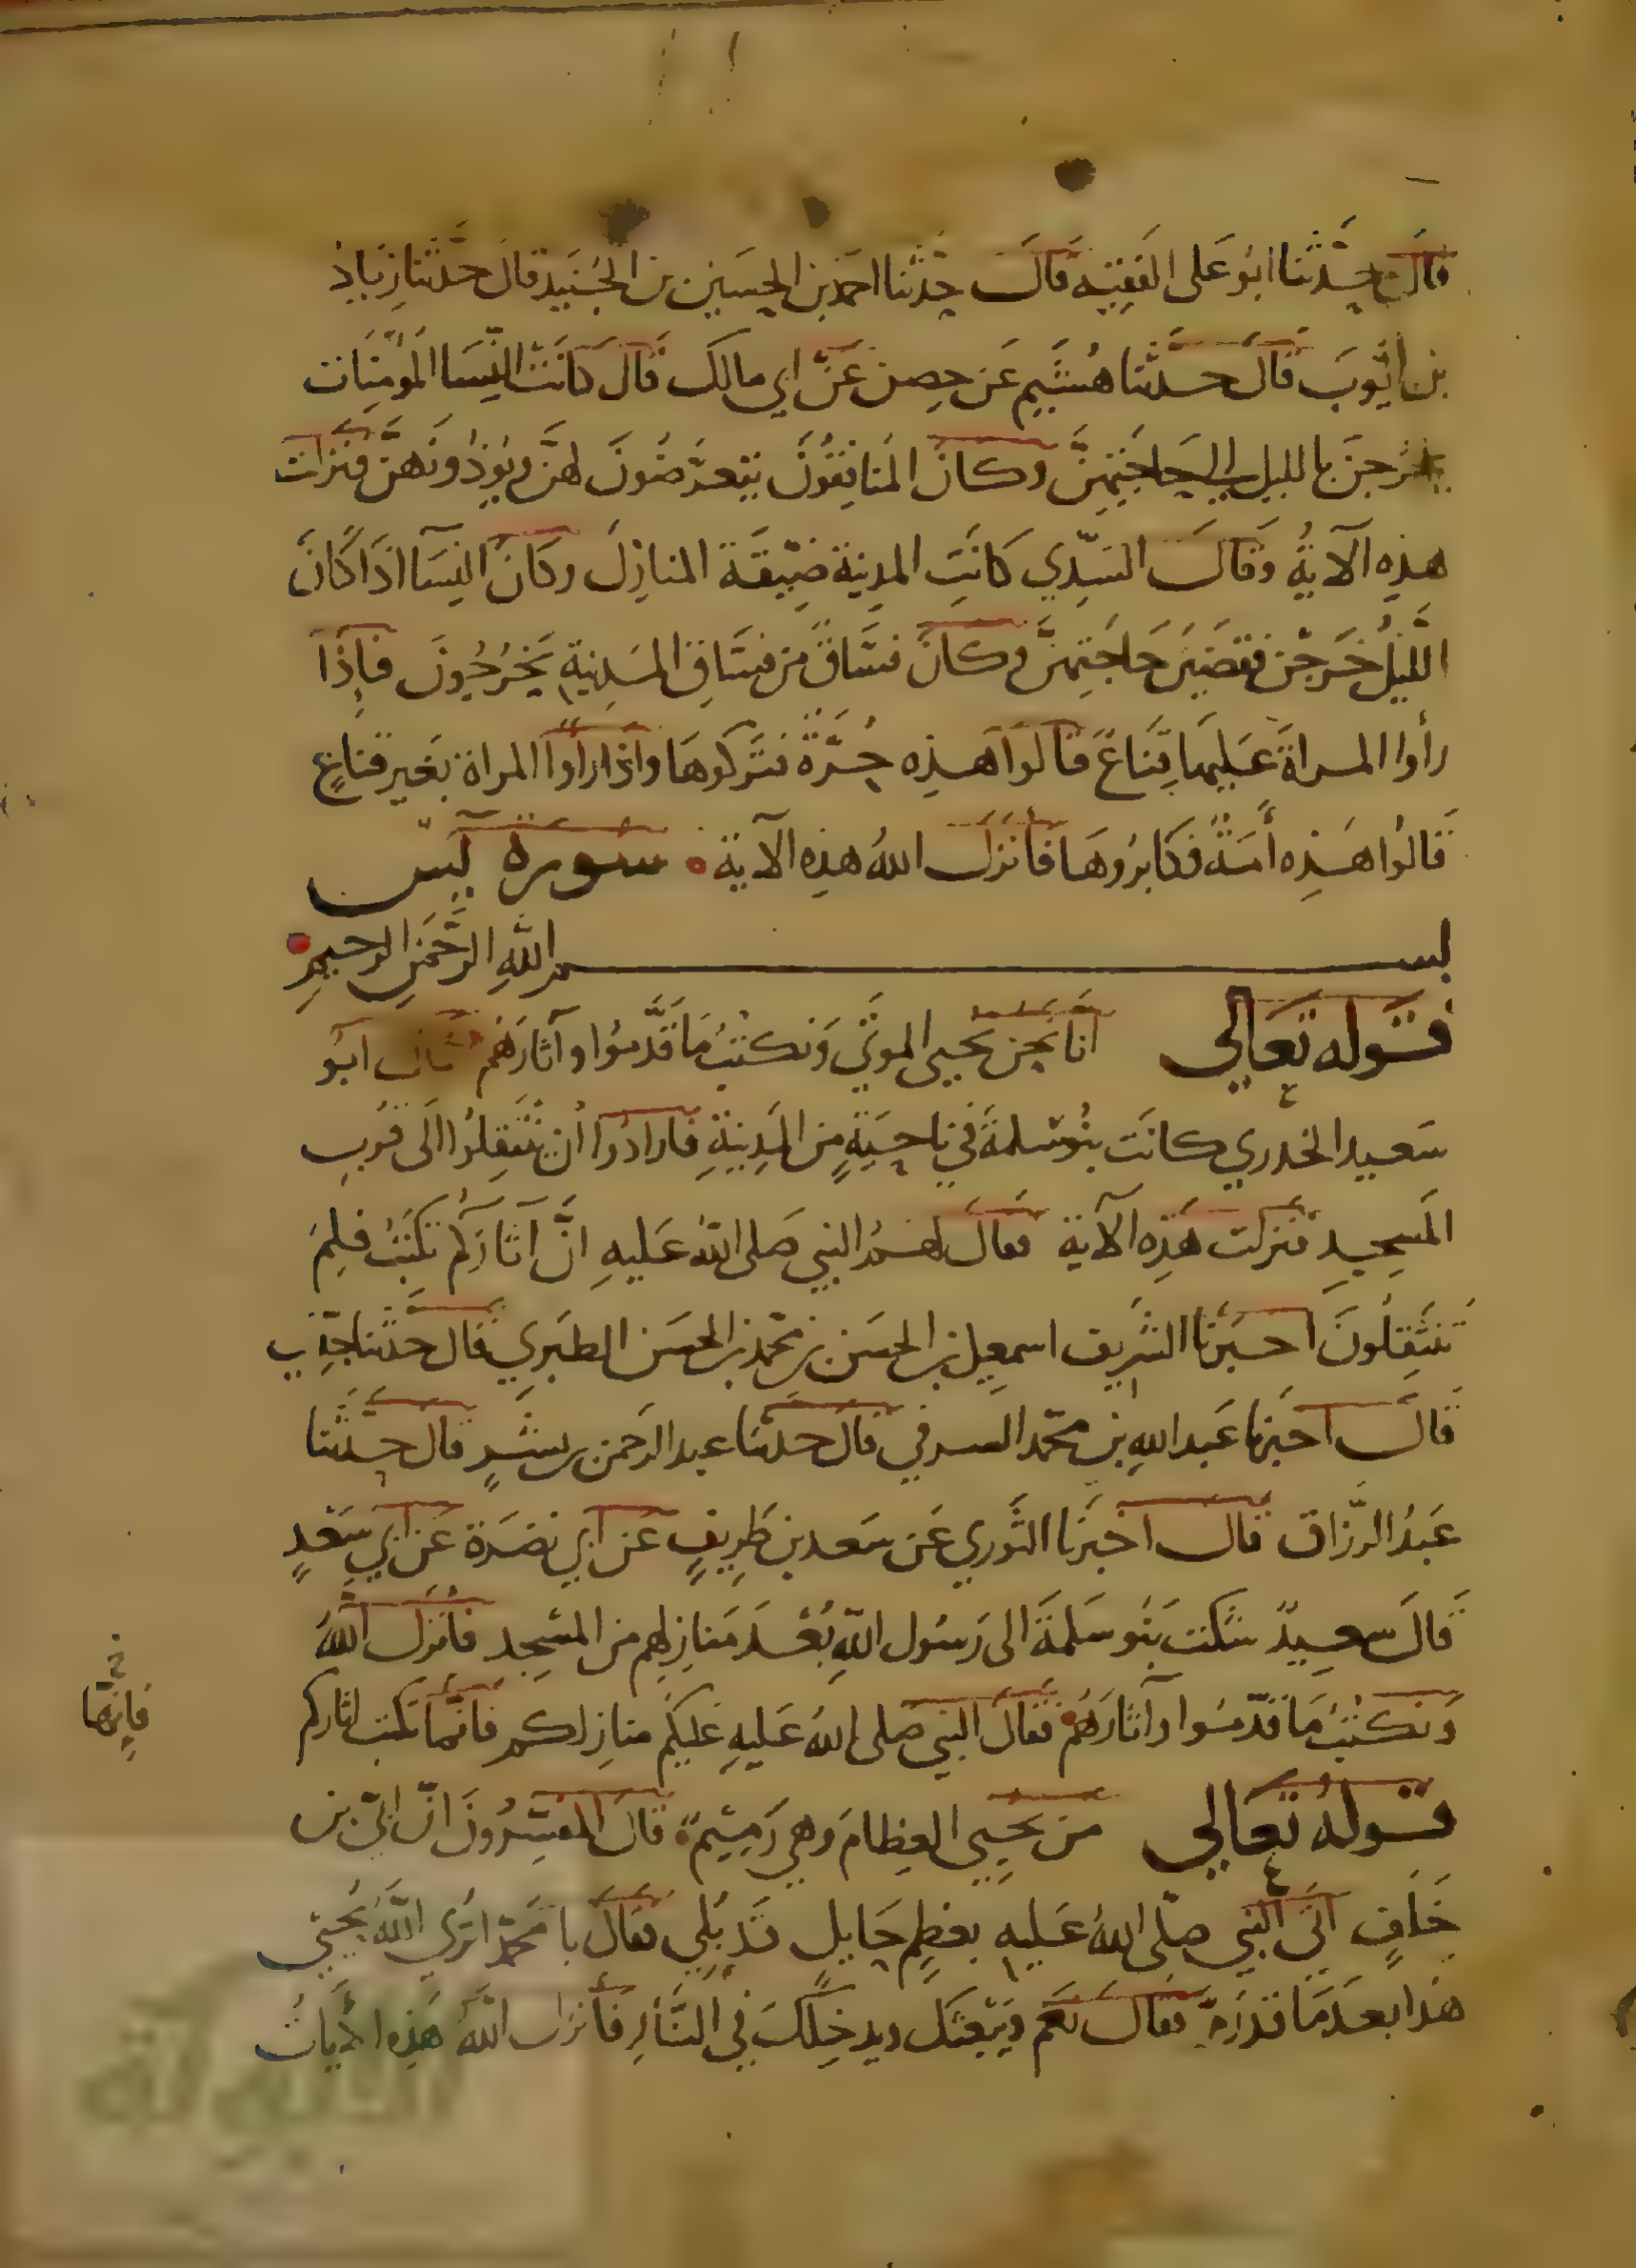 قال حدثنا ابو على الفقيه قال حدثنا احمد بن الحسين بن الجنيد قال حدثنا زياد
بن ايوب قال حدثنا هشيم عن حصين عن ابي مالك قال كانت النسا المومنات
يخرجن بالليل الي حاجتهن وكان المنافقون يتعرضون لهن ويوذونهن فنزلت
هذه الآية وقال السدي كانت المدينة ضيقة المنازل وكان النسا اذا كان
الليل خرجن فقضين حاجتهن وكان فساق من فساق المدينة يخرجون فاذا
رأوا المراة عليها قناع قالوا هذه حرة فتركوها واذا راوا المراة بغير قناع
قالوا هذه أمة فكابروها فأنزل الله هذه الآية سورة يس
بسم الله الرحمن الرحيم
قوله تعالي انا نحن نحيي الموتي ونكتب ما قدموا وآثارهم قال ابو
سعيد الخدري كانت بنو سلمة في ناحية من المدينة فارادوا أن ينتقلوا الى قرب
المسجد فنزلت هذه الآية فقال لهم النبي صلى الله عليه انّ آثاركم تكتب فلم
تنتقلون اخبرنا الشريف اسمعيل بن الحسن بن محمد بن الحسن الطبري قال حدثنا جدي
قال اخبرنا عبد الله بن محمد السرفي قال حدثنا عبد الرحمن بن بشر قال حدثنا
عبد الرزاق قال اخبرنا الثوري عن سعد بن طريف عن ابي نضرة عن ابي سعد
قال سعيد شكت بنو سلمة الى رسول الله بعد منازلهم من المسجد فانزل الله
ونكتب ما قدموا وآثارهم فقال النبي صلى الله عليه عليكم منازلكم فانما تكتب اثاركم
فانها
قوله تعالي من يحيي العظام وهي رميم قال المفسرون انّ ابيّ بن
خلف اتى النبي صلى الله عليه بعظم حايل قد بلي فقال يا محمد اترى الله يحيي
هذا بعد ما قد رمّ فقال نعم ويبعثك ويدخلك في النار فأنزل الله هذه الآيات